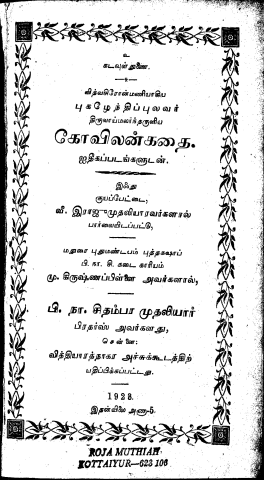 உ
கடவுள் துணை.
வித்வசிரோன்மணியாகிய
புகழேந்திப்புலவர்
திருவாய்மலர்ந்தருளிய
கோவிலன்கதை.
ஐதிகப்படங்களுடன்.
இஃது
குயப்பேட்டை,
வீ. இராஜுமுதலியாரவர்களால்
பார்வையிடப்பட்டு,
மதுரை புதுமண்டபம் புத்தகஷாப்
பி. நா. சி. கடை காரியம்
மு. கிருஷ்ணப்பிள்ளை அவர்களால்,
பி. நா. சிதம்பர முதலியார்
பிரதர்ஸ் அவர்களது,
சென்னை:
வித்தியாரத்நாகர அச்சுக்கூடத்திற்
பதிப்பிக்கப்பட்டது.
1928
இதன்விலை அணா-5.
ROJA MUTHIAH
KOTTAIYUR-623 106